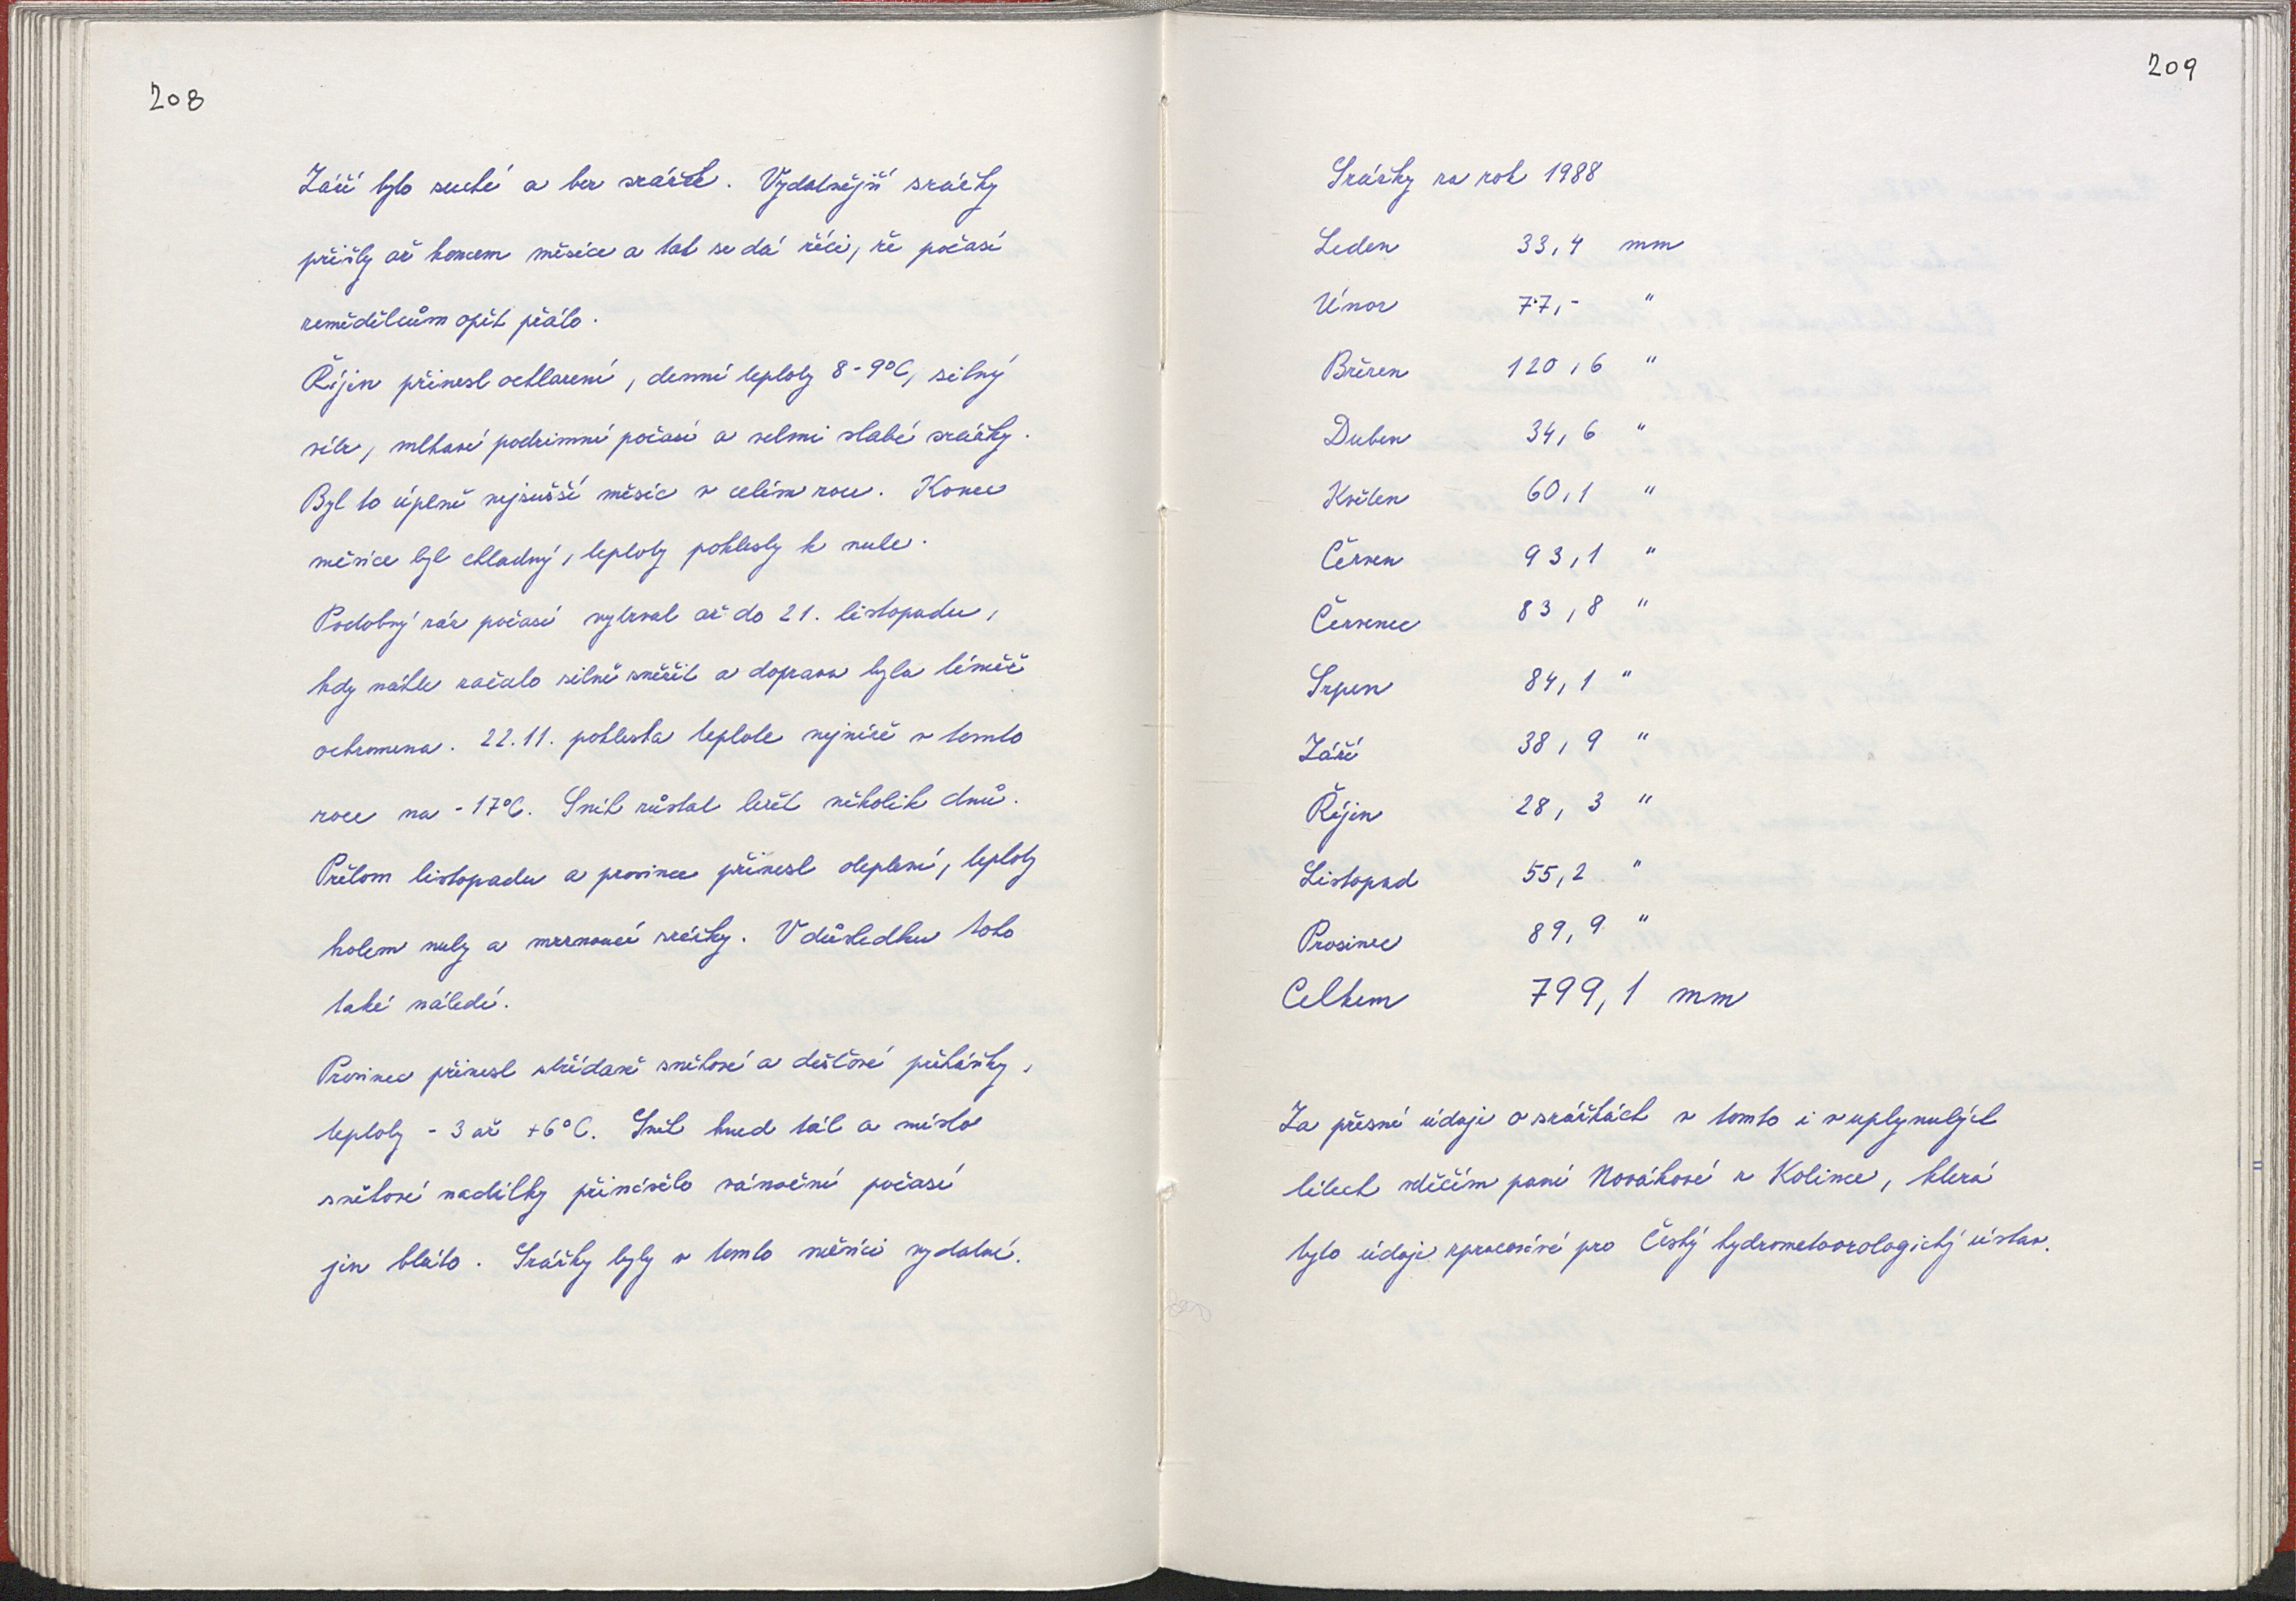 208
Září bylo suché a bez srážek. Vydatnější srážky
přišly až koncem měsíce a tak se dá říci, že počasí
zemědělcům opět přálo.
Říjen přinesl ochlazení, denní teploty 8-9°C, silný
vítr, mlhavé podzimní počasí a velmi slabé srážky.
Byl to úplně nejsušší měsíc v celém roce. Konec
měsíce byl chladný, teploty poklesly k nule.
Podobný ráz počasí vytrval až do 21. listopadu,
kdy náhle začalo silně sněžit a doprava byla téměř
ochromena. 22.11. poklesla teplota nejníže v tomto
roce na -17°C. Sníh zůstal ležet několik dnů.
Přelom listopadu a prosince přinesl oteplení, teploty
kolem nuly a mrznoucí srážky. V důsledku toho
také náledí.
Prosinec přinesl střídavě sněhové a dešťové přeháňky,
teploty -3 až +6°C. Sníh hned tál a místo
sněhové nadílky přineslo vánoční počasí
jen bláto. Srážky byly v tomto měsíci vydatné.
209
Srážky za rok 1988
Leden 33,4 mm
Únor 77,- "
Březen 120,6 "
Duben 34,6 "
Květen 60,1 "
Červen 93,1 "
Červenec 83,8 "
Srpen 84,1 "
Září 38,9 "
Říjen 28,3 "
Listopad 55,2 "
Prosinec 89,9 "
Celkem 799,1 mm
Za přesné údaje o srážkách v tomto i v uplynulých
létech vděčím paní Novákové z Kolince, která
tyto údaje zpracovává pro Český hydrometeorologický ústav.